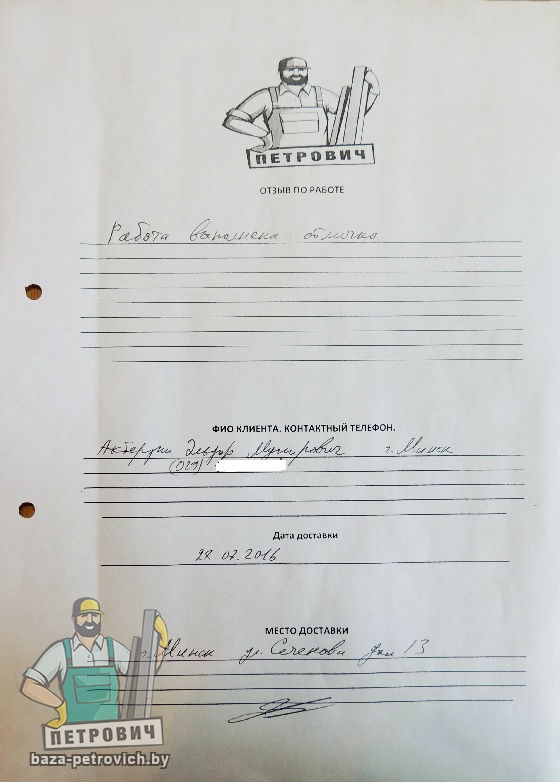 ПЕТРОВИЧ
ОТЗЫВ ПО РАБОТЕ
Работа выполнена отлично
ФИО КЛИЕНТА. КОНТАКТНЫЙ ТЕЛЕФОН.
Эльдар г. Минск
(029)
Дата доставки
28.07.2016
МЕСТО ДОСТАВКИ
г. Минск ул. Сеченова дом 13
ПЕТРОВИЧ
baza-petrovich.by